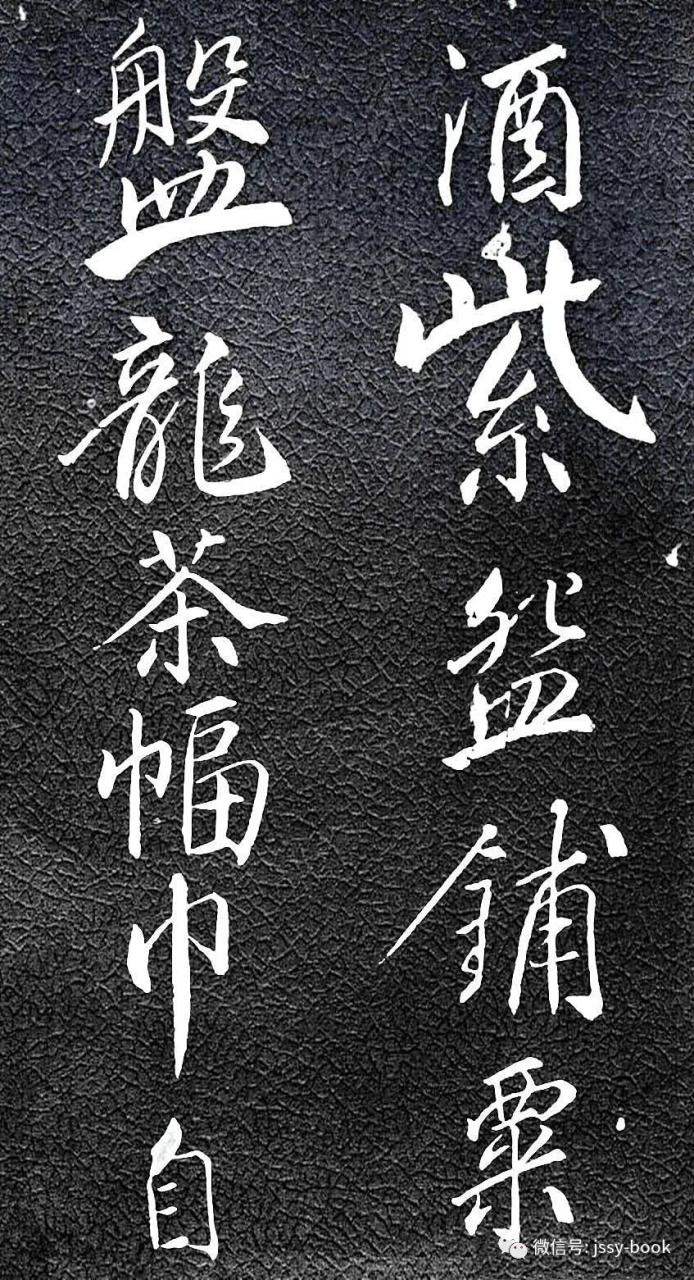 酒紫盌鋪粟
盤龍茶幅巾自
微信号: jssy-book